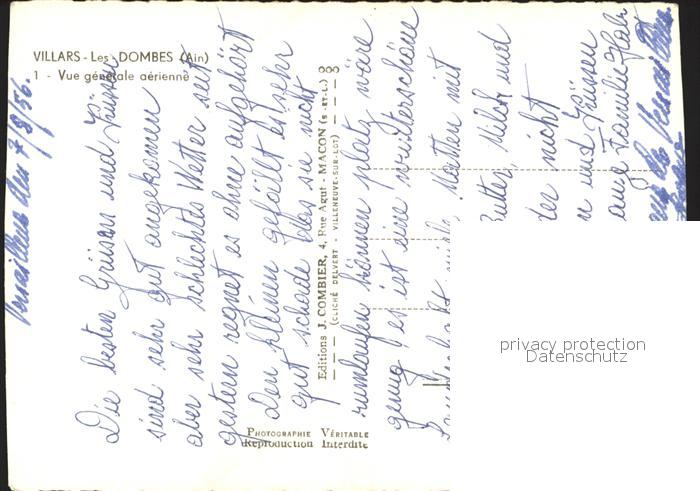 VILLARS - Les DOMBES (Ain)
1 - Vue générale aérienne
den 7/8/56.
Die besten Grüsen und Küssen
sind sehr gut angekommen
aber sehr schlechtes Wetter seit
gestern regnet es ohne aufgehört
Den kleinen gefällt es sehr
gut schade das sie nicht
rumlaufen können platz wäre
genug es ist eine wunterschöne
mit
Butter, Milch und
nicht
und Küssen
Familie
Editions J. COMBIER, 4, Rue Agut - MACON (S.-ET-L.)
(CLICHÉ DELVERT - VILLENEUVE-SUR-LOT)
PHOTOGRAPHIE VÉRITABLE
Reproduction Interdite
privacy protection
Datenschutz